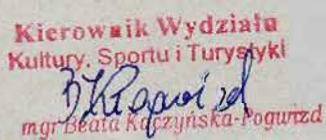 Kierownik Wydziału
Kultury, Sportu i Turystyki
mgr Beata Kaczyńska-Pogwizd